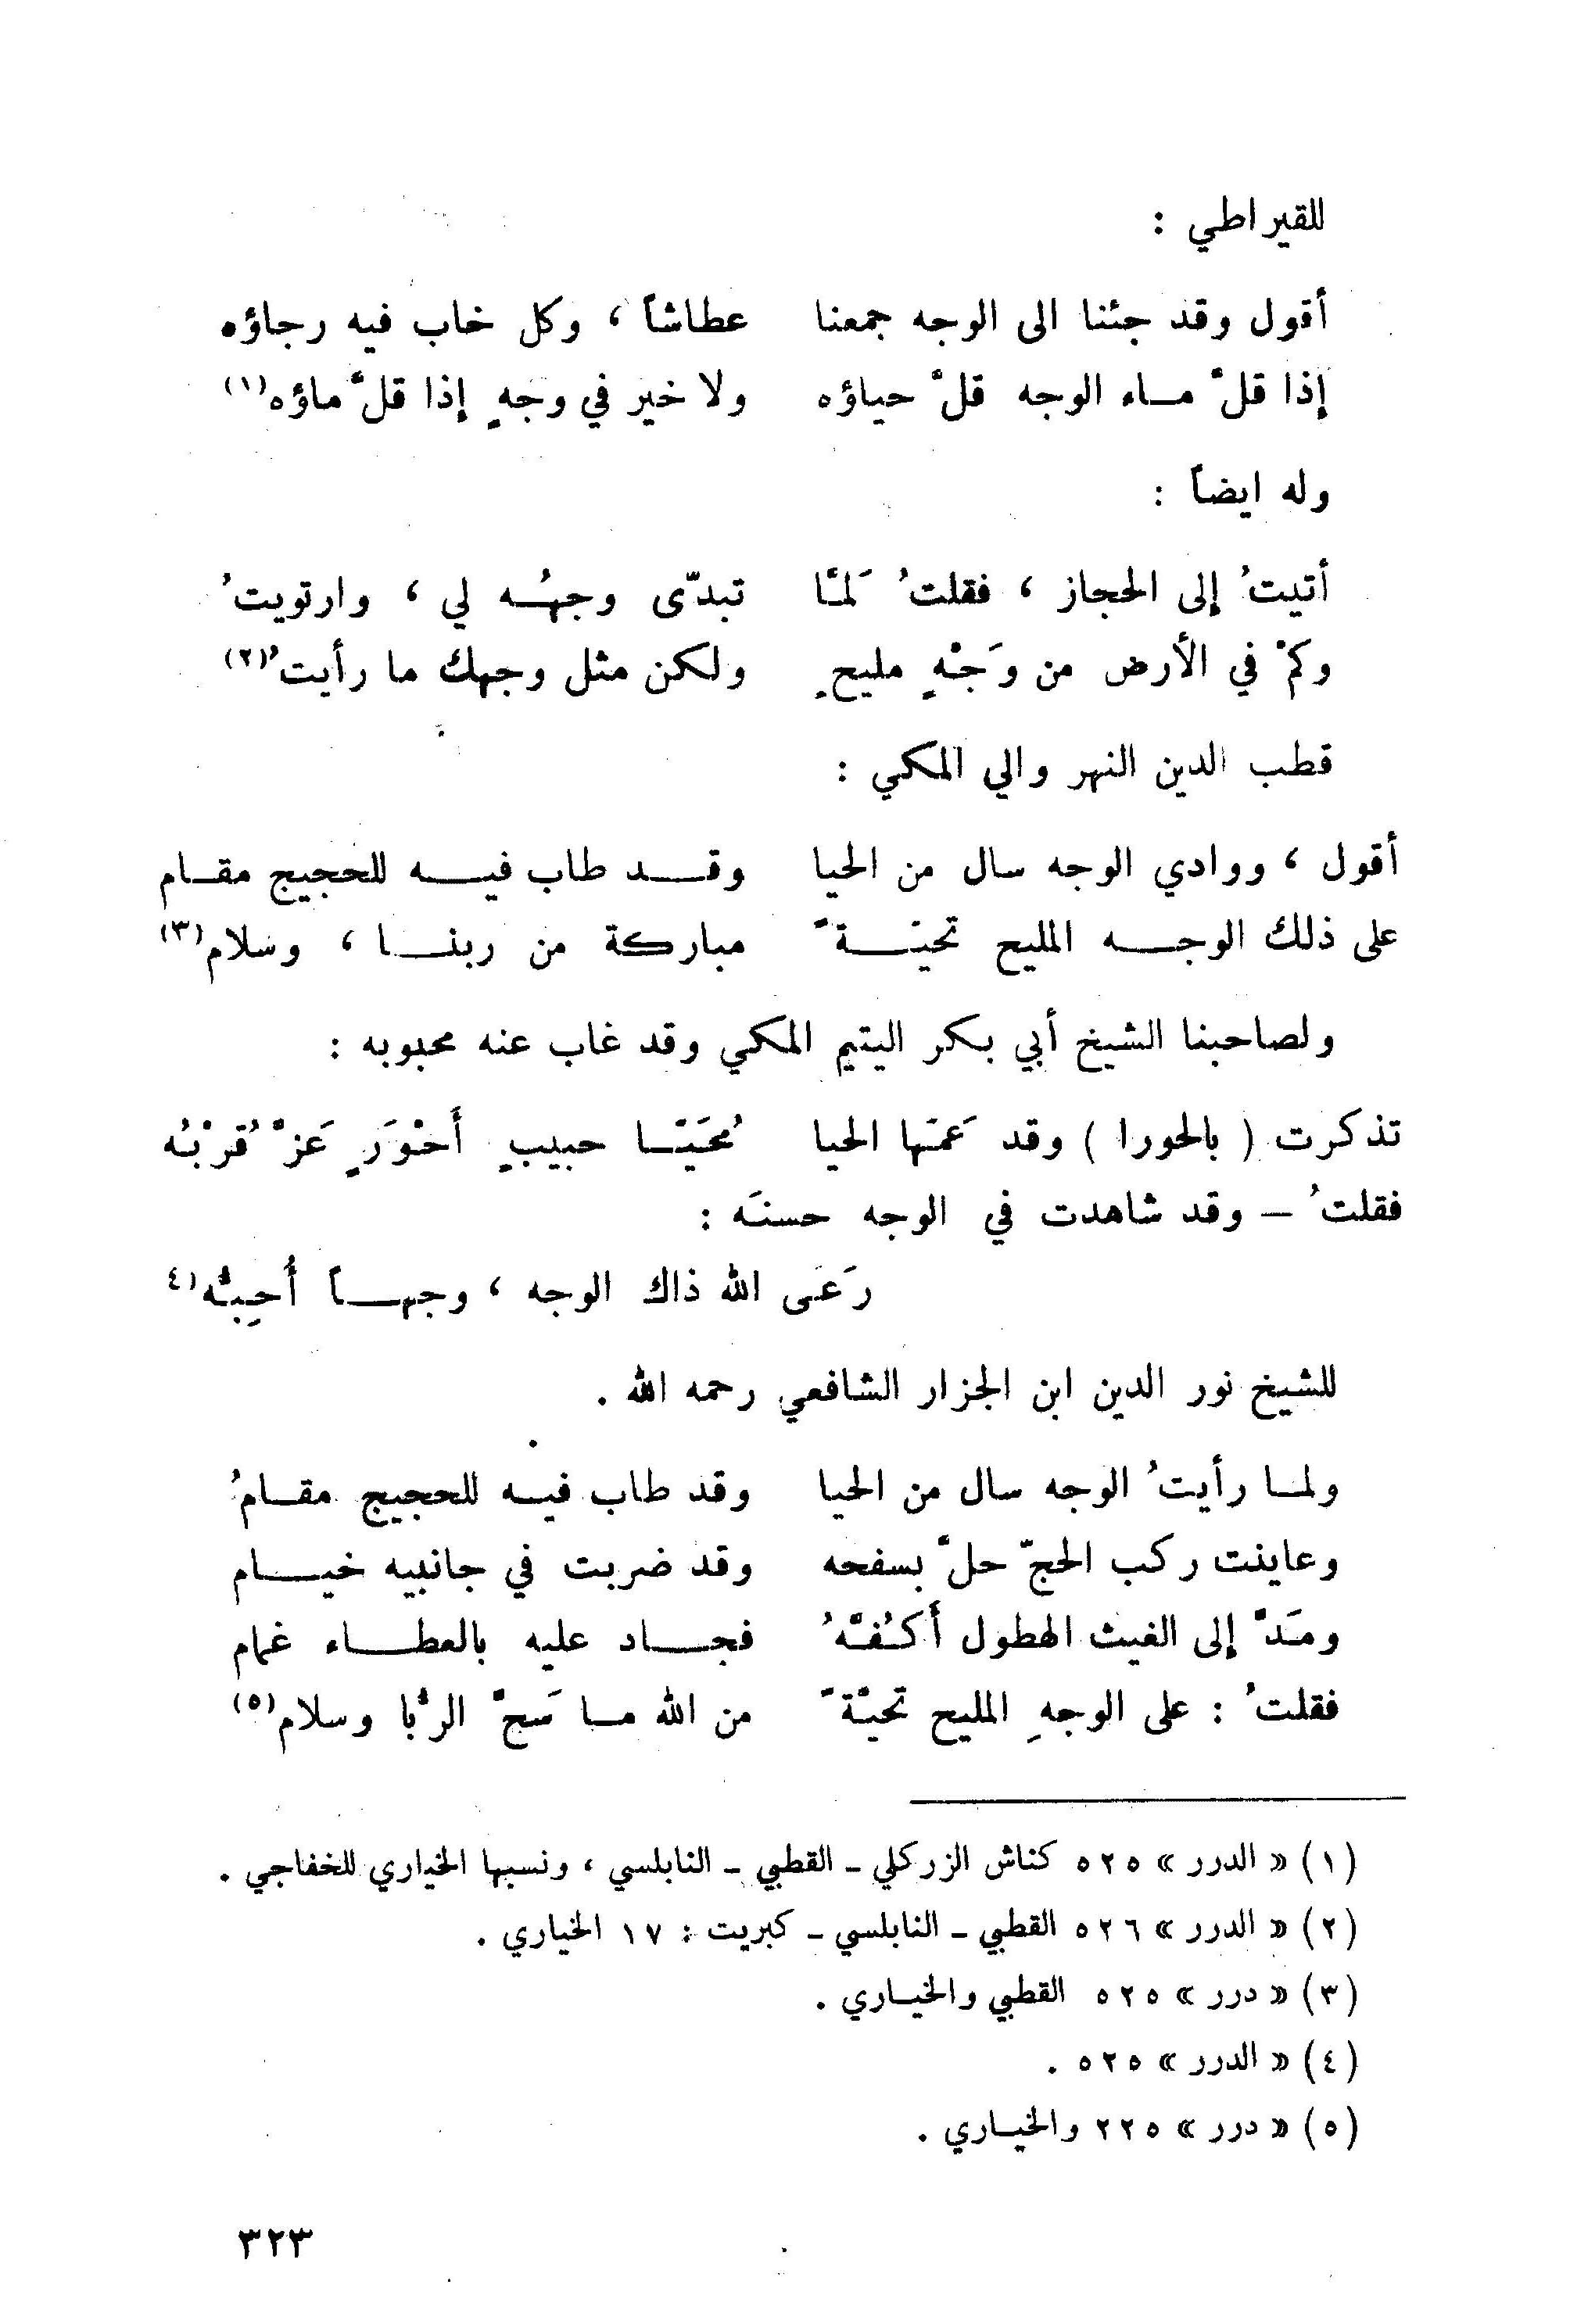 للقيراطي :
أقول وقد جئنا الى الوجه جمعنا عطاشاً ، وكل خاب فيه رجاؤه
إذا قلَّ مـاء الوجه قلَّ حياؤه ولا خير في وجهٍ إذا قلَّ ماؤه(١)
وله ايضاً :
أتيتُ إلى الحجاز ، فقلتُ لَمَّا تبدّى وجهُـه لي ، وارتويتُ
وكمْ في الأرض من وَجْهٍ مليحٍ ولكن مثل وجهك ما رأيتُ(٢)
قطب الدين النهر والي المكي :
أقول ، ووادي الوجه سال من الحيا وقـد طاب فيـه للحجيج مقـام
على ذلك الوجـه المليح تحيّـةً مباركة من ربنـا ، وسلام(٣)
ولصاحبنا الشيخ أبي بكر اليتيم المكي وقد غاب عنه محبوبه :
تذكرت ( بالحورا ) وقد عَمَّها الحيا مُحَيَّـا حبيبٍ أَحْوَرٍ عَزَّ قُرْبُه
فقلتُ – وقد شاهدت في الوجه حسنَه :
رَعَى الله ذاك الوجه ، وجهـاً أُحِبُّه(٤
للشيخ نور الدين ابن الجزار الشافعي رحمه الله .
ولمـا رأيتُ الوجه سال من الحيا وقد طاب فيـه للحجيج مقـامُ
وعاينت ركب الحجّ حلَّ بسفحه وقد ضربت في جانبيه خيـام
ومَدَّ إلى الغيث الهطول أَكُفَّهُ فجـاد عليه بالعطـاء غمام
فقلتُ : على الوجهِ المليح تحيّةً من الله مـا سَجَّ الرُّبا وسلام(٥)
(١) « الدرر » ٥٢٥ كناش الزركلي – القطبي – النابلسي ، ونسبها الخياري للخفاجي .
(٢) « الدرر » ٥٢٦ القطبي – النابلسي – كبريت : ١٧ الخياري .
(٣) « درر » ٥٢٥ القطبي والخيـاري .
(٤) « الدرر » ٥٢٥ .
(٥) « درر » ٢٢٥ والخيـاري .
٣٢٣